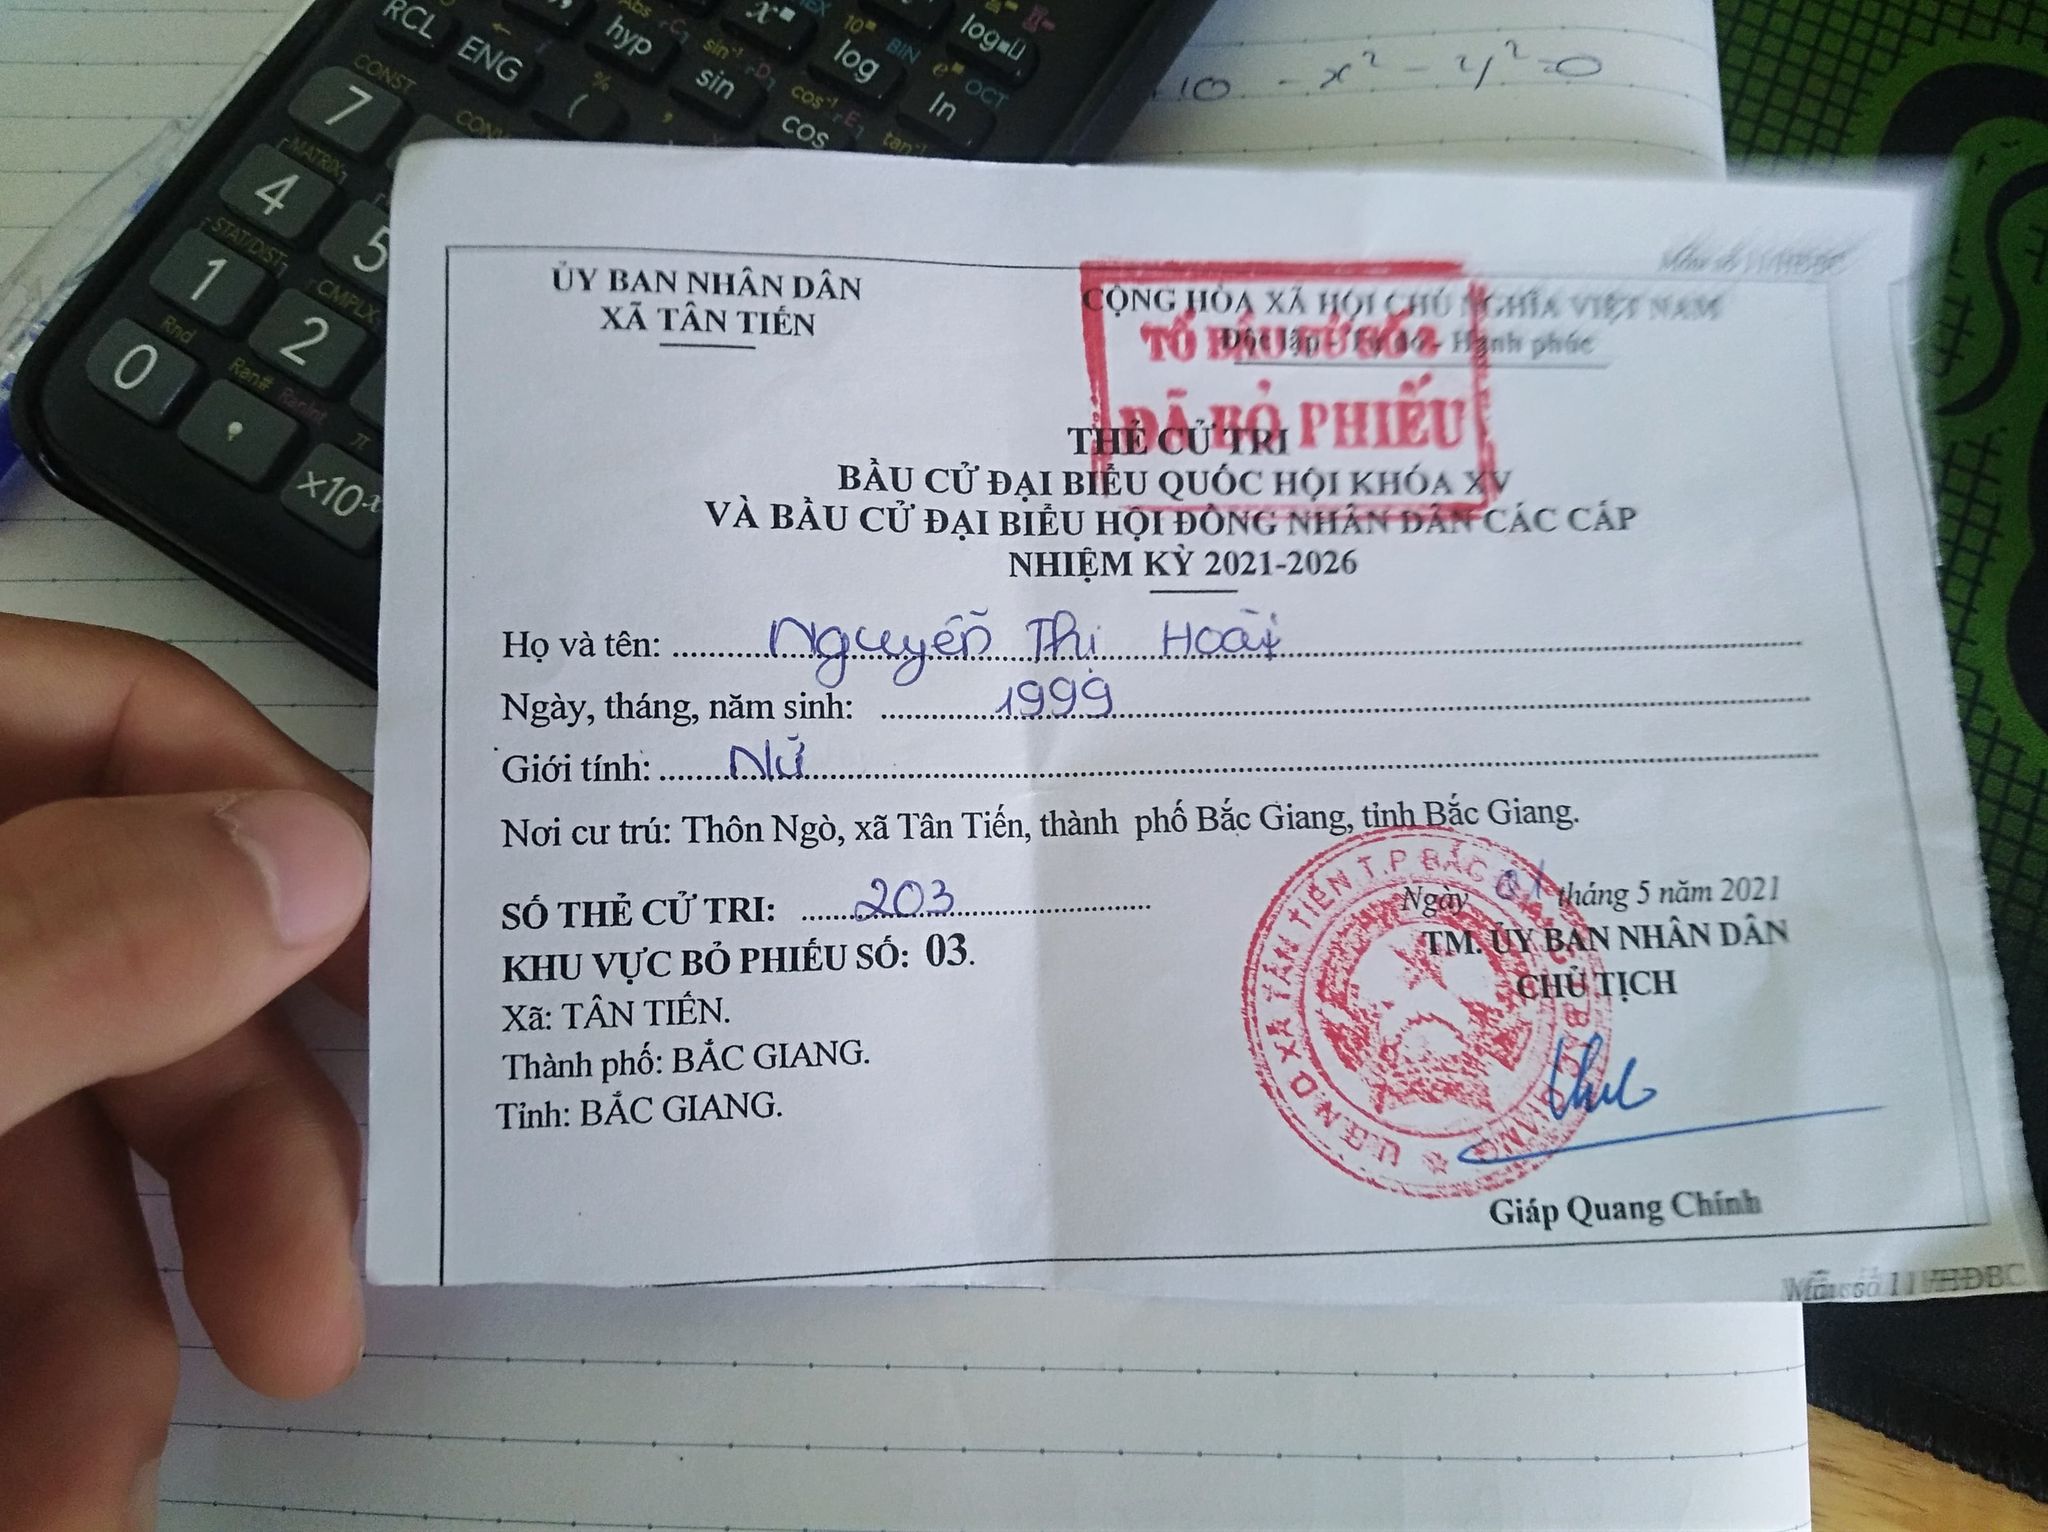 RCL
ENG
hyp
sin
log
ln
cos
CONST
7
(
MATRIX
4
5
STAT/DIST
1
CMPLX
2
Rnd
0
Ran#
RanInt
π
×10ˣ
%
Abs
sin⁻¹
cos⁻¹
tan⁻¹
BIN
OCT
10 - x² - y² = 0
ỦY BAN NHÂN DÂN
XÃ TÂN TIẾN
CỘNG HÒA XÃ HỘI CHỦ NGHĨA VIỆT NAM
Độc lập - Tự do - Hạnh phúc
TỔ BẦU CỬ SỐ 3
ĐÃ BỎ PHIẾU
THẺ CỬ TRI
BẦU CỬ ĐẠI BIỂU QUỐC HỘI KHÓA XV
VÀ BẦU CỬ ĐẠI BIỂU HỘI ĐỒNG NHÂN DÂN CÁC CẤP
NHIỆM KỲ 2021-2026
Họ và tên: Nguyễn Thị Hoài
Ngày, tháng, năm sinh: 1999
Giới tính: Nữ
Nơi cư trú: Thôn Ngò, xã Tân Tiến, thành phố Bắc Giang, tỉnh Bắc Giang.
SỐ THẺ CỬ TRI: 203
KHU VỰC BỎ PHIẾU SỐ: 03.
Xã: TÂN TIẾN.
Thành phố: BẮC GIANG.
Tỉnh: BẮC GIANG.
Ngày 01 tháng 5 năm 2021
TM. ỦY BAN NHÂN DÂN
CHỦ TỊCH
U.B.N.D XÃ TÂN TIẾN T.P BẮC GIANG
Giáp Quang Chính
Mẫu số 11/HĐBC